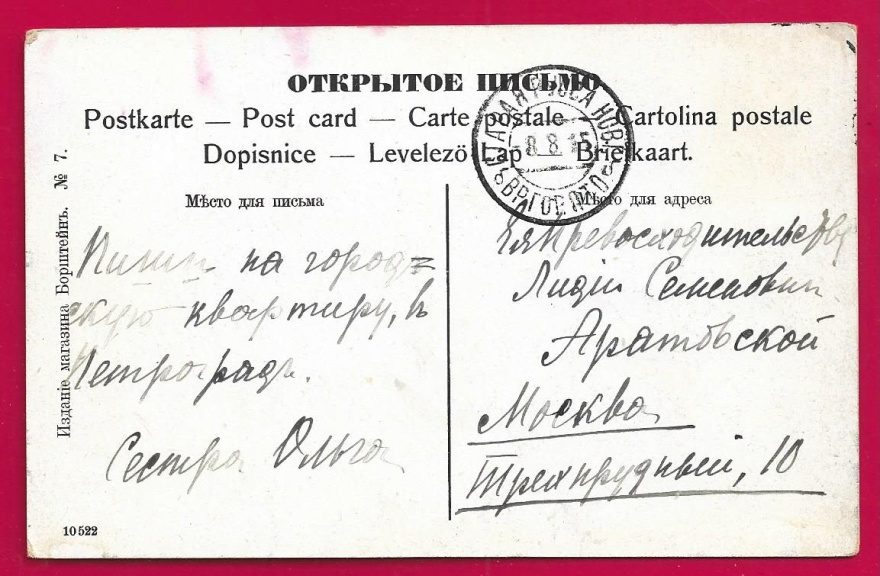 ОТКРЫТОЕ ПИСЬМО
Postkarte — Post card — Carte postale — Cartolina postale
Dopisnice — Levelező Lap — Briefkaart.
СТАРАЯ РУССА НОВГ.
8 8 15
Мѣсто для письма
Мѣсто для адреса
Пиши на город=
скую квартиру, в
Петроградъ.
Сестра Ольга
Ея Превосходительству
Лидіи Семеновны
Аратовской
Москва
Трехпрудный, 10
Изданіе магазина Борштейнъ. № 7.
10522